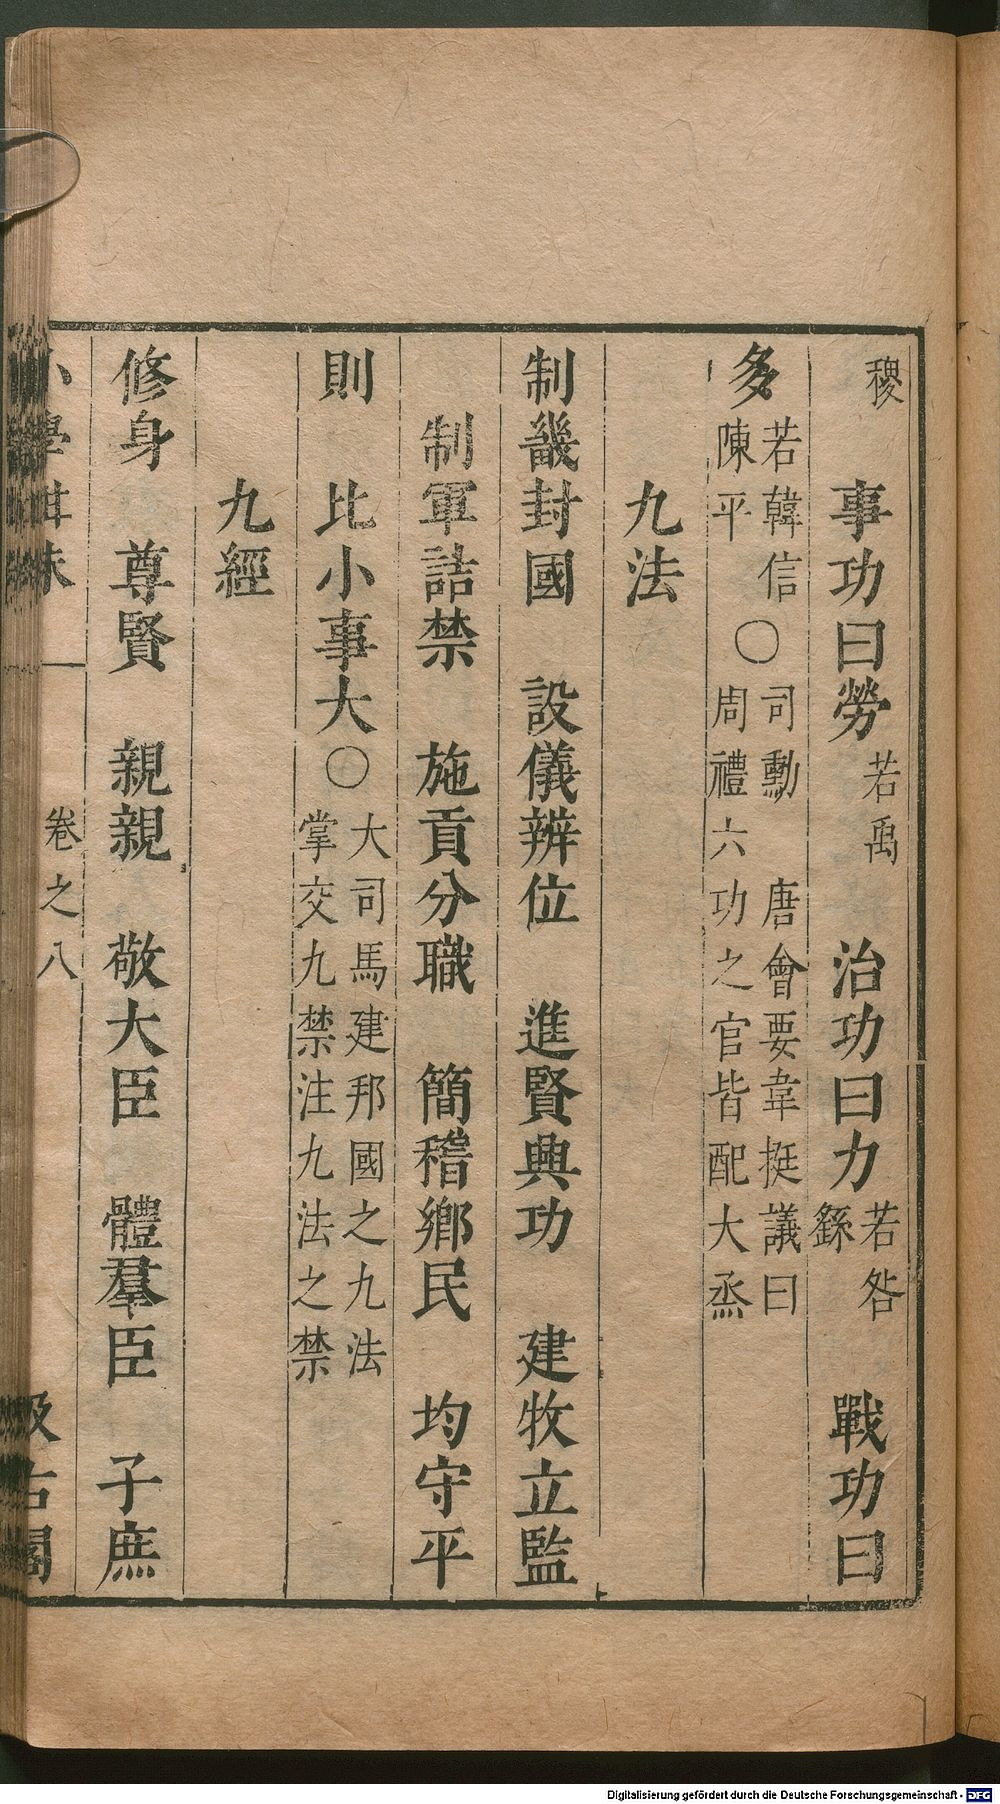 稷　事功曰勞若禹　治功曰力若咎繇　戰功曰
多若韓信陳平○司勳　唐會要韋挺議曰周禮六功之官皆配大烝
九法
制畿封國　設儀辨位　進賢興功　建牧立監
制軍詰禁　施貢分職　簡稽鄉民　均守平
則　比小事大○大司馬建邦國之九法掌交九禁注九法之禁
九經
修身　尊賢　親親　敬大臣　體羣臣　子庶
小學紺珠　卷之八　汲古閣
Digitalisierung gefördert durch die Deutsche Forschungsgemeinschaft - DFG